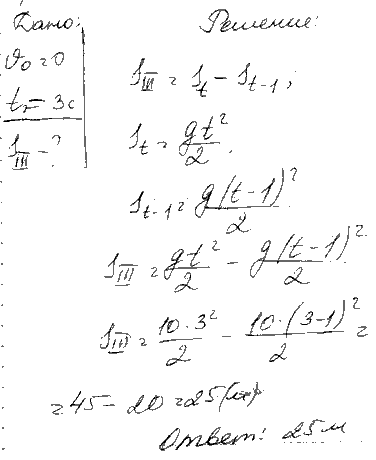 Дано: Решение:
v₀ = 0
t = 3с
S_III - ?
S_III = S_t - S_{t-1};
S_t = gt²/2.
S_{t-1} = g(t-1)²/2
S_III = gt²/2 - g(t-1)²/2
S_III = 10·3²/2 - 10·(3-1)²/2 =
= 45 - 20 = 25 (м)
Ответ: 25 м